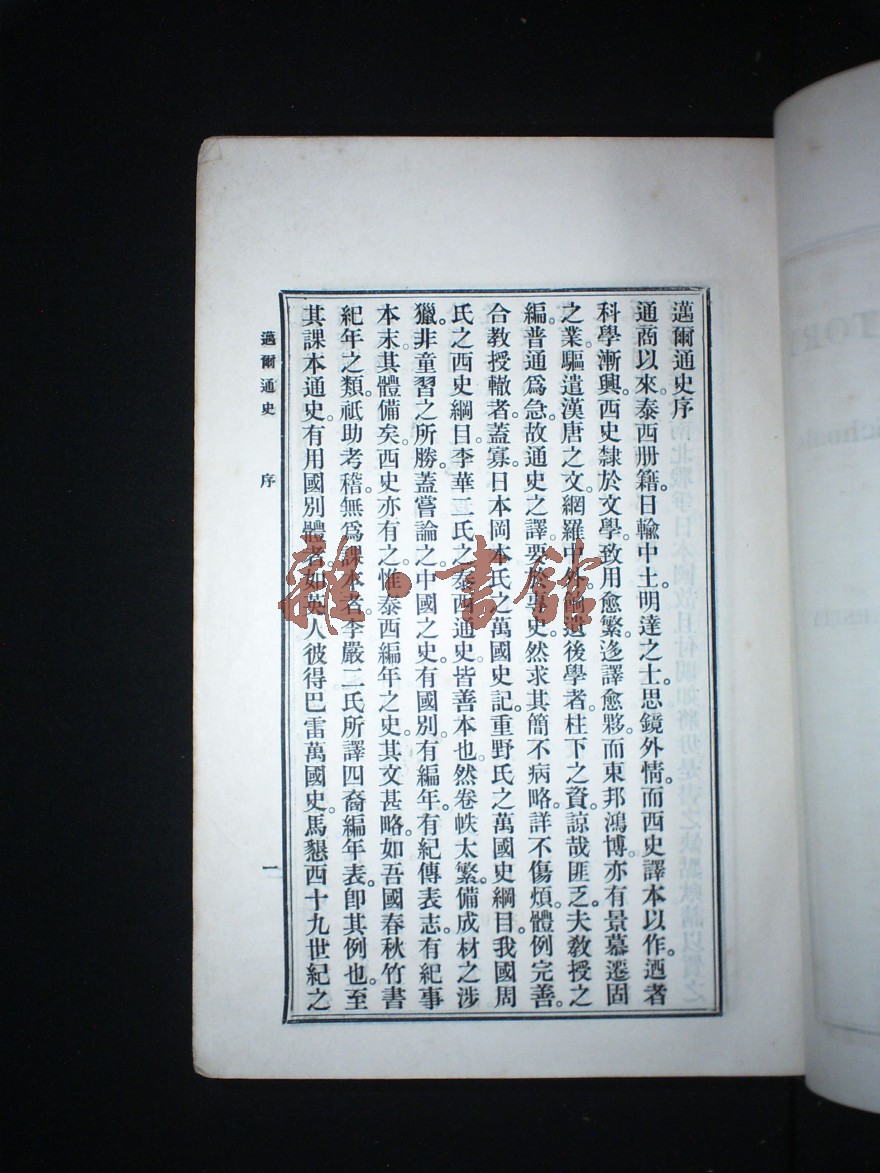 邁爾通史序
通商以來。泰西册籍。日輸中土。明達之士。思鏡外情。而西史譯本以作。迺者
科學漸興。西史隸於文學。致用愈繁。迻譯愈夥。而東邦鴻博。亦有景慕遷固
之業。驅遣漢唐之文。網羅中外。餉遺後學者。柱下之資。諒哉匪乏。夫教授之
編。普通爲急。故通史之譯。要於專史。然求其簡不病略。詳不傷煩。體例完善。
合教授轍者。蓋寡。日本岡本氏之萬國史記。重野氏之萬國史綱目。我國周
氏之西史綱目。李華二氏之泰西通史。皆善本也。然卷帙太繁。備成材之涉
獵。非童習之所勝。蓋嘗論之。中國之史。有國別。有編年。有紀傳表志。有紀事
本末。其體備矣。西史亦有之。惟泰西編年之史。其文甚略。如吾國春秋竹書
紀年之類。祇助考稽。無爲課本者。李嚴二氏所譯四裔編年表。卽其例也。至
其課本通史。有用國別體者。如英人彼得巴雷萬國史。馬懇西十九世紀之
邁爾通史 序 一
雜·書館
TOR
Schools